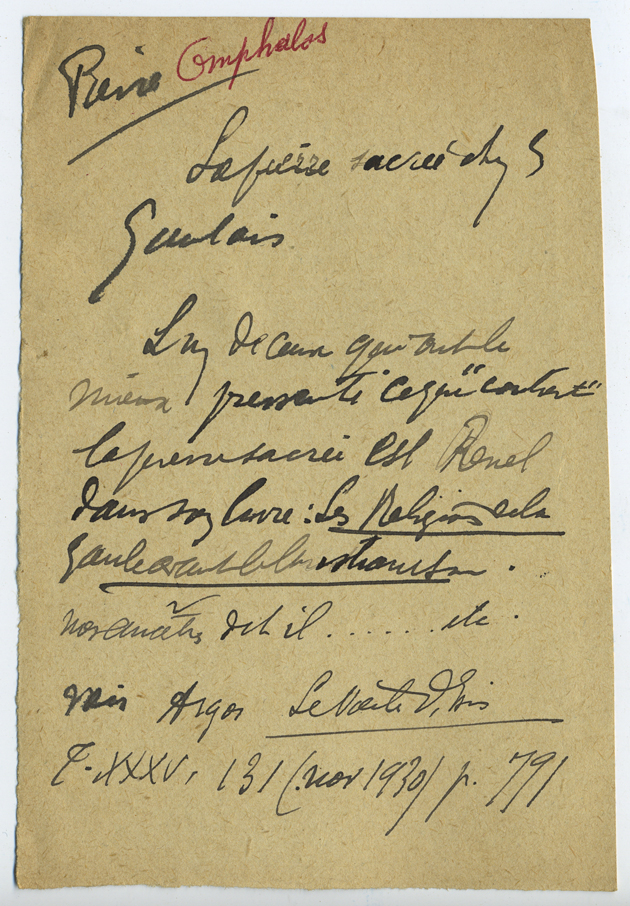 Pierre Omphalos
La pierre sacrée chez les
Gaulois
L'un de ceux qui ont le
mieux pressenti "ce qui
la pierre sacrée est Renel
dans son livre : Les Religions de la
Gaule avant le Christianisme.
nos ancêtres dit il ...... etc.
voir Argos Le Voile d'Isis
T. XXXV, 131 (nov 1930) p. 791